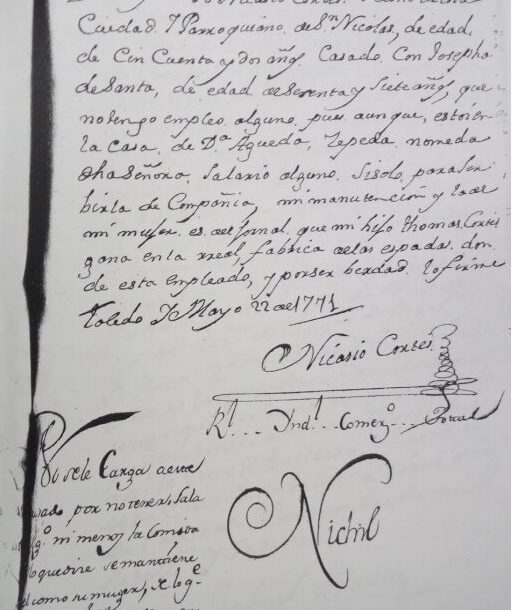 Ciudad Y Parroquiano de Sn Nicolas, de edad,
de Cin Cuenta y dos añs, Casado, Con Josepha
de Santa, de edad de Sesenta y Siete añs, que
no tengo empleo alguno, pues aunque, estoi en
la Casa, de Da Agueda, Zepeda, no me da
dha Señora, Salario alguno, si solo, para Ser
birla de Compañia, mi manutencion y la de
mi muger, es del Jornal, que mi hijo thomas, Cortes
gana en la rreal, fabrica de las espadas, don
de esta empleado, y por ser berdad, lo firme
toledo Y Mayo 22 de 1771
Nicasio Cortes
Rl... Yndl.. Comerzo... Total
No se le Carga a este
por no tener, Sala
go ni menos la Comida
lo que dize se mantiene
como su muger, de lo qe
Nichil